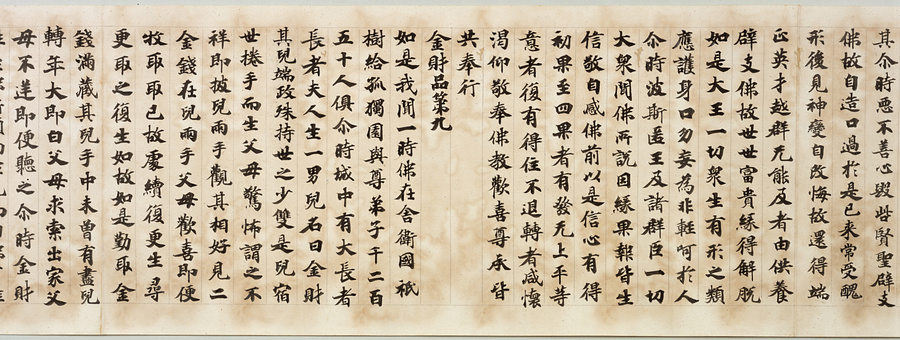 其尒時悪不善心毀呰賢聖辟支
佛故自造口過於是已来常受醜
形後見神變自改悔故還得端
正英才越群无能及者由供養
辟支佛故世世富貴緣得解脫
如是大王一切衆生有形之類
應護身口勿妄為非輕呵於人
尒時波斯匿王及諸群臣一切
大衆聞佛所說因緣果報皆生
信敬自感佛前以是信心有得
初果至四果者有發无上平等
意者復有得住不退轉者咸懷
渴仰敬奉佛教歡喜尊承皆
共奉行
金財品第九
如是我聞一時佛在舍衛國祇
樹給孤獨園與尊弟子千二百
五十人俱尒時城中有大長者
長者夫人生一男兒名曰金財
其兒端政殊特世之少雙是兒宿
世捲手而生父母驚怖謂之不
祥即披兒兩手觀其相好見二
金錢在兒兩手父母歡喜即便
牧取取已故處續復更生尋
更取之復生如故如是勤取金
錢滿藏其兒手中未曾有盡兒
轉年大即白父母求索出家父
母不逆即便聽之尒時金財